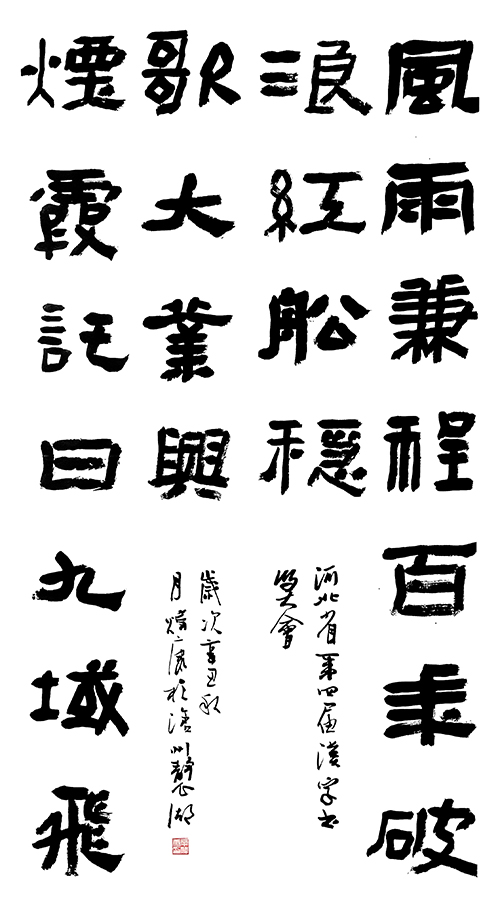 風雨兼程百年破
浪紅舩穩
河北省第四届漢字
會
歌大業興
歲次辛丑秋
月於滄州靜心湖
煙霞託日九域飛